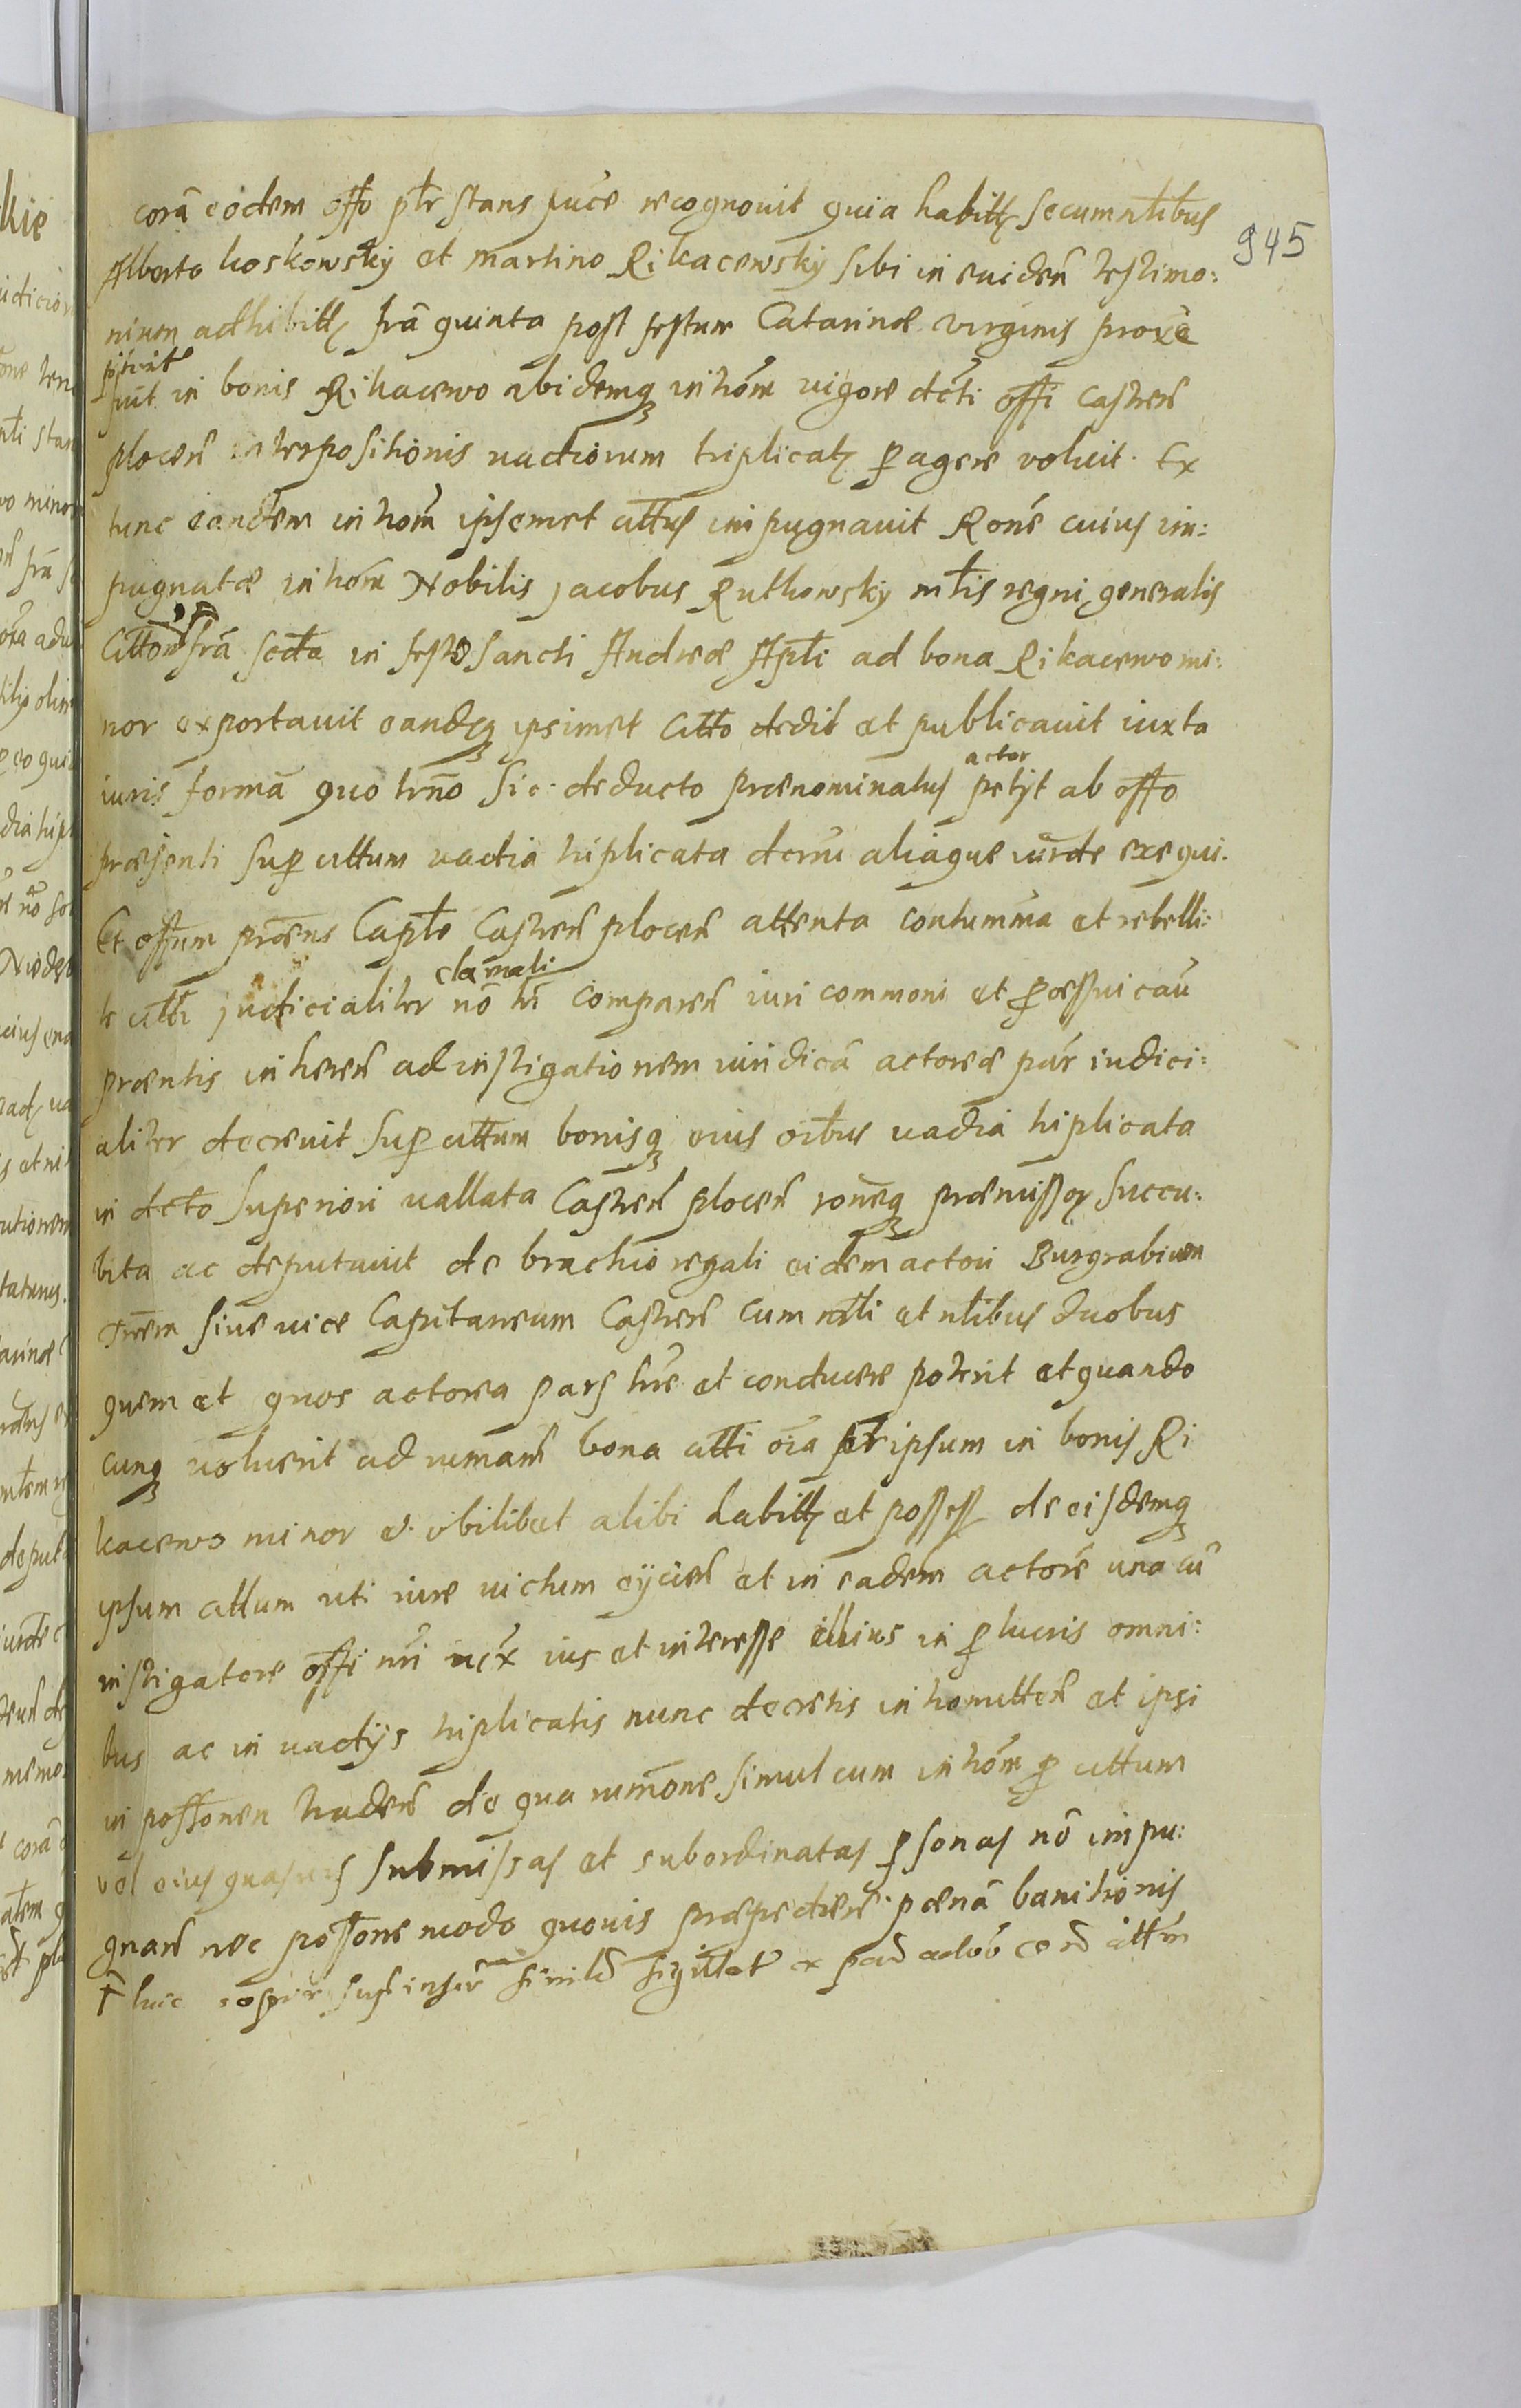 945
corã eodem offo pltr stans luce recognovit quia habitt secum nltibus
Alberto koskowsky et martino Rikacewsky sibi in euiden testimo:
nium adhibitt frã quinta post festum Catarinæ virginis proxe
fuit in bonis Rikacewo ibidemq inhom uigore dcti offi Castren
plocen interpositionis uadiorum triplicat pagere voluit. Ex
tunc eandem inhom ipsemet cittus impugnauit Rone cuius im:
pugnatæ inhom Nobilis Jacobus Rutkowsky mltis regni generalis
frã sexta in festo sancti Andreæ Apli ad bona Rikacewo mi:
nor exportauit eandeq ipsimet Citto dedit et publicauit iuxta
actor
iuris formã quo trno sic deducto prænominatus petÿt ab offo
præsenti sup cittum uadia triplicata cterni aliaque iurde exequi.
Et offum præns Capte Castren plocen attenta contumma et rebelli:
clamati
te citti judicialiter nõ tri comparen iuri communi et pcessui cau
præntis inheren ad instigationem iuridicã actoreæ par iudici:
aliter decreuit sup cittum bonisq eius oibus uadia triplicata
in dcto superiori uallata Castren plocen roneq præmissor succu:
bita ac deputauit de brachio regali eidem actori Burgrabium
siue uice Capitaneum Castren cum mlti et nltibus duobus
quem et quos actorea pars hre et conducere poterit et quando
cunq uoluerit ad rumand bona citti oia per ipsum in bonis Ri
kacewo minor et ubilibet alibi habitt et possess de eisdemq
ipsum cittum uti iure uictum eÿcien et in eadem actore una cu
instigatore offi nri ius et interesse illius in plucris omni:
bus ac in uadÿs triplicatis nunc decretis intromitten et ipsi
in possonen traden de qua rumone simul cum inhom p cittum
vel eius quasuis submissas et subordinatas psonas nõ impu:
gnan nec possone modo quouis præpedien pænã banitionis